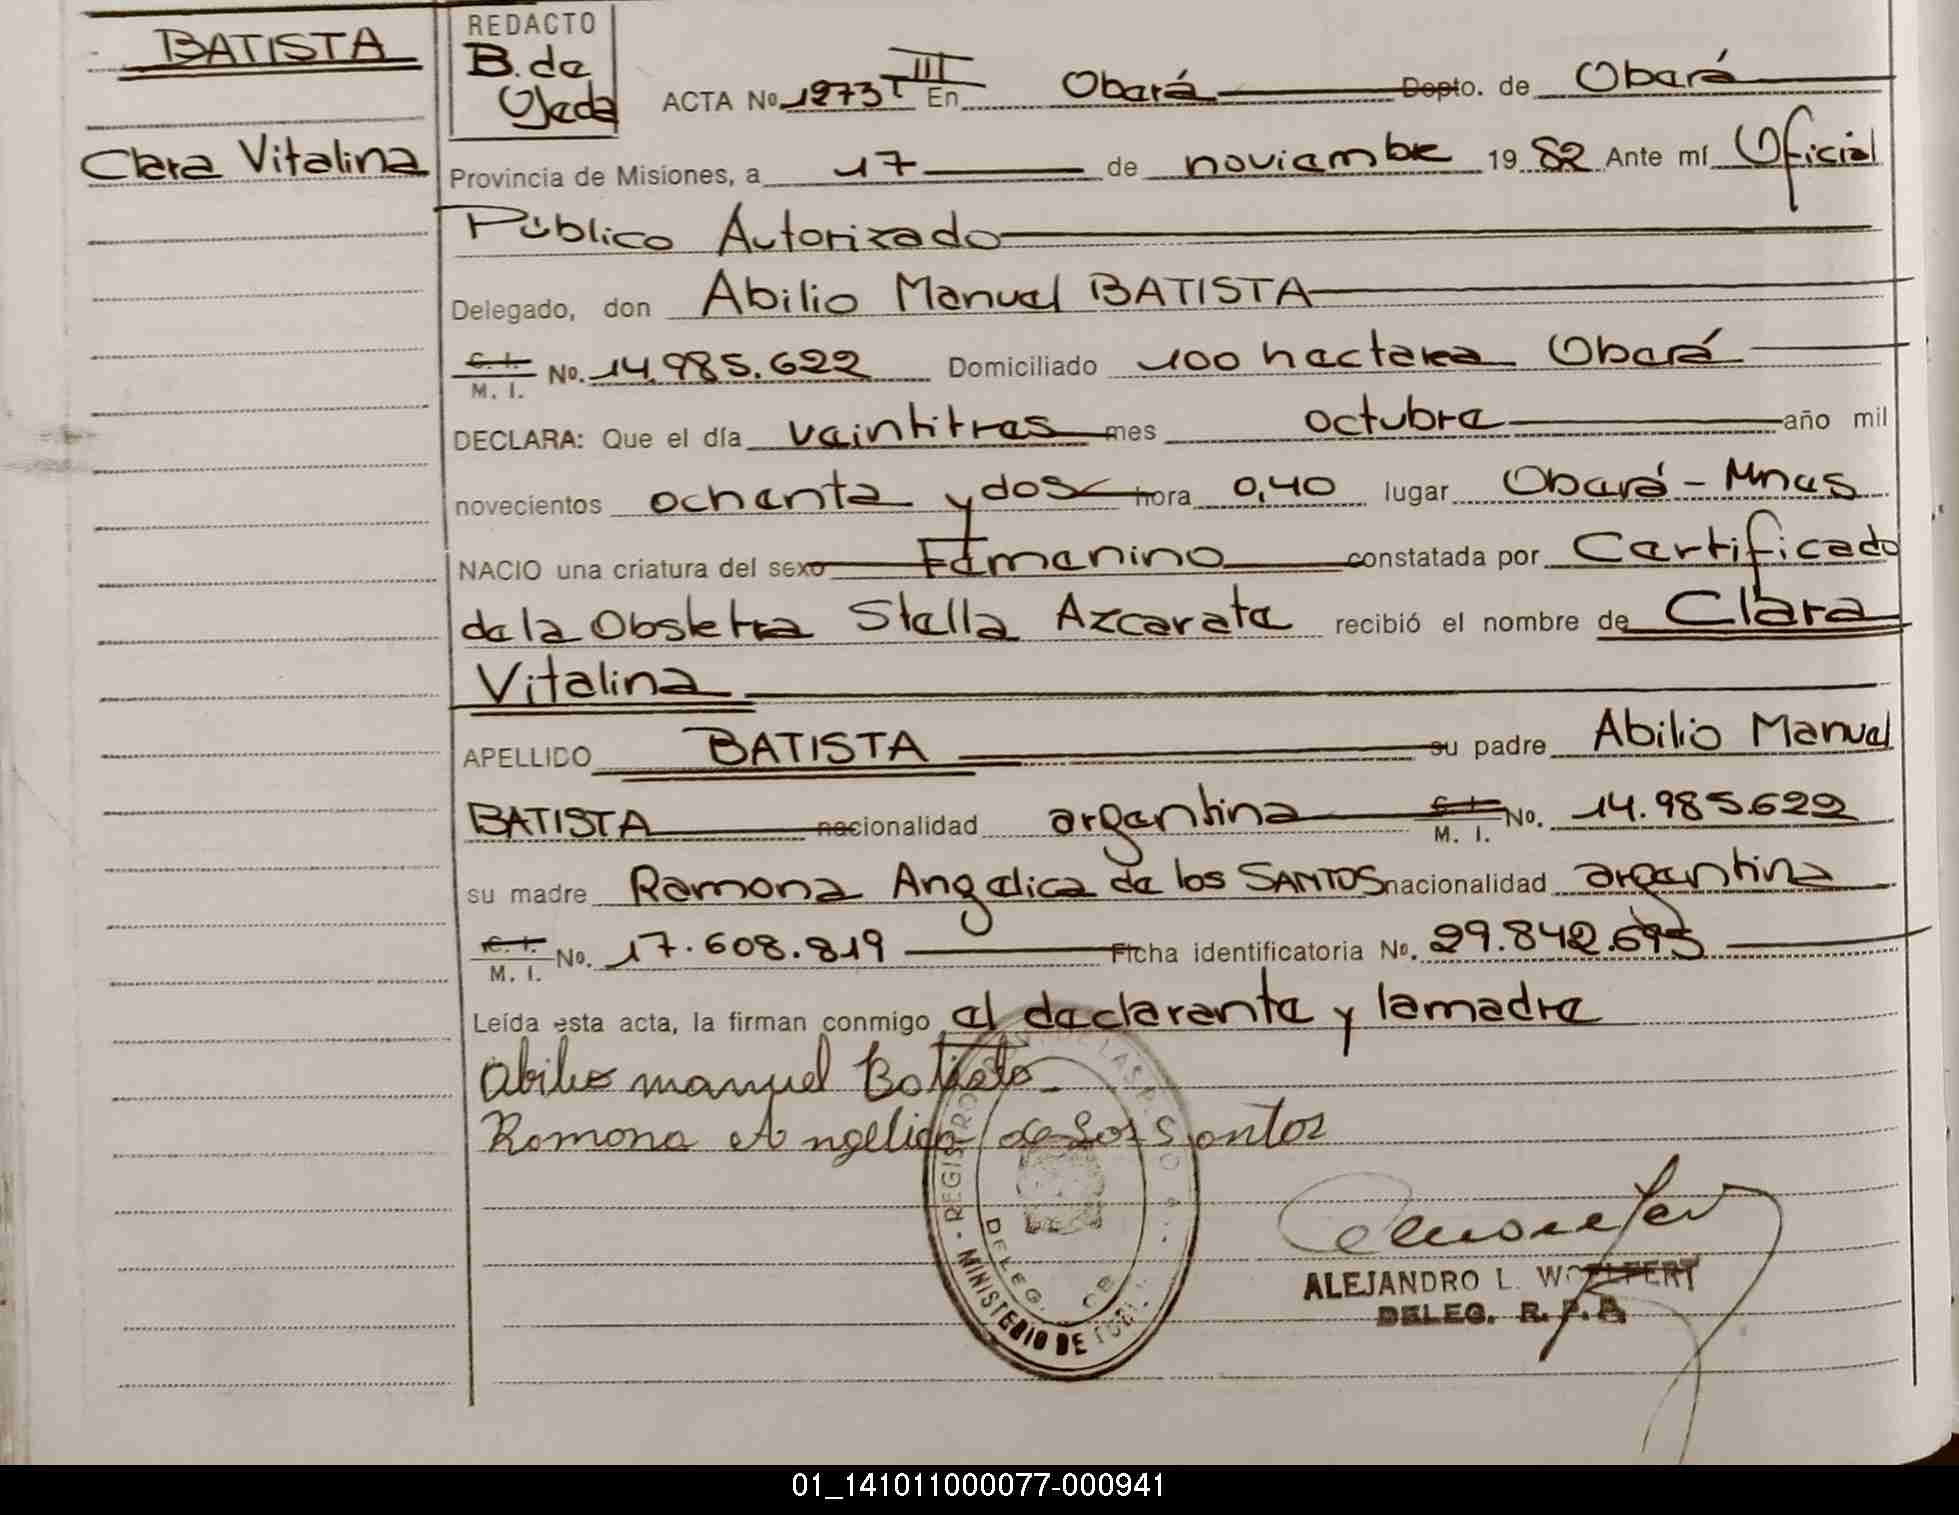 BATISTA
Clara Vitalina
REDACTO
B. de
Ojeda
ACTA No 1273 T III En Oberá Depto. de Oberá
Provincia de Misiones, a 17 de noviembre 1982 Ante mí Oficial
Público Autorizado
Delegado, don Abilio Manuel BATISTA
C. I.
M. I. No. 14.985.622 Domiciliado 100 hectarea Oberá
DECLARA: Que el día veintitres mes octubre año mil
novecientos ochenta y dos hora 0,40 lugar Oberá - Mnes
NACIO una criatura del sexo Femenino constatada por Certificado
de la Obstetra Stella Azcarate recibió el nombre de Clara
Vitalina
APELLIDO BATISTA su padre Abilio Manuel
BATISTA nacionalidad argentina C. I.
M. I. No. 14.985.622
su madre Ramona Angelica de los SANTOS nacionalidad argentina
C. I.
M. I. No. 17.608.819 Ficha identificatoria No. 29.842.695
Leída esta acta, la firman conmigo el declarante y la madre
Abilio manuel Batista
Ramona Angelica de los Santos
REGIS PRO DE LAS PERSO
DELEG. OBE
MINISTERIO DE GOBI
ALEJANDRO L. WOELFERT
DELEG. R. P. A
01_141011000077-000941